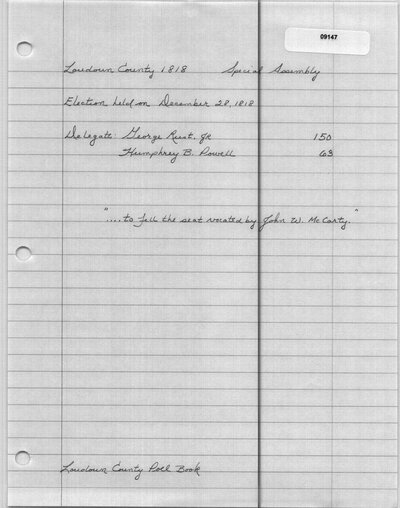 09147
Loudoun County 1818 Special Assembly
Election held on December 28, 1818
Delegate: George Rust, Jr 150
Humphrey B. Powell 63
"....to fill the seat vacated by John W. McCarty."
Loudoun County Poll Book